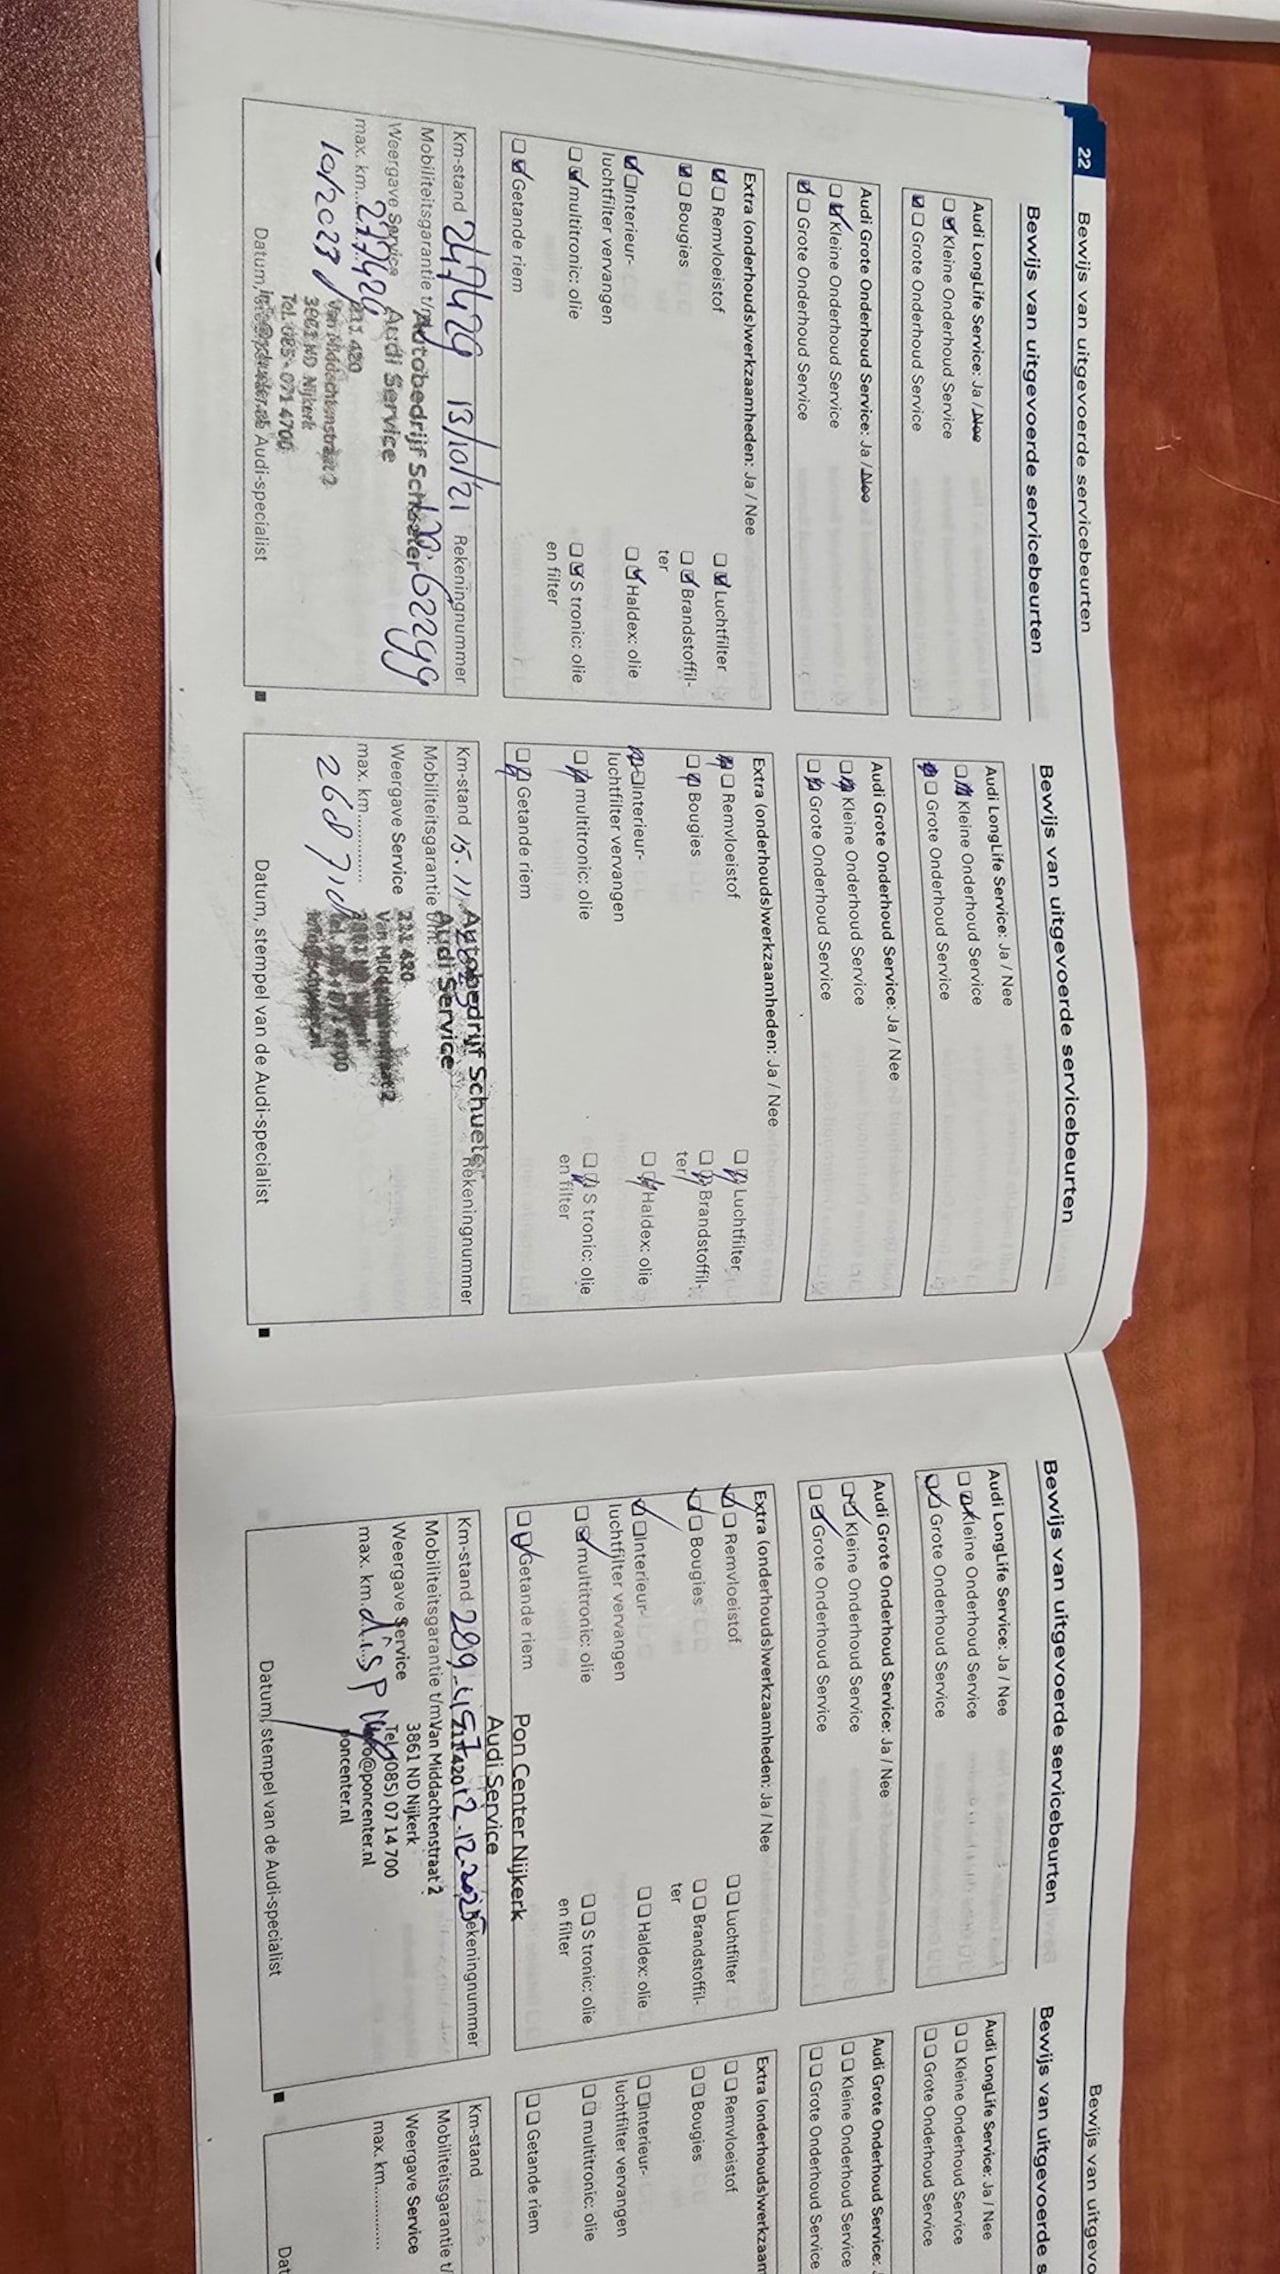 22
Bewijs van uitgevoerde servicebeurten
Bewijs van uitgevoerde servicebeurten
Audi LongLife Service: Ja / Nee
Kleine Onderhoud Service
Grote Onderhoud Service
Audi Grote Onderhoud Service: Ja / Nee
Kleine Onderhoud Service
Grote Onderhoud Service
Extra (onderhouds)werkzaamheden: Ja / Nee
Remvloeistof
Luchtfilter
Bougies
Brandstoffil-
ter
Interieur-
luchtfilter vervangen
Haldex: olie
multitronic: olie
S tronic: olie
en filter
Getande riem
Km-stand 247429 13/10/21 Rekeningnummer
Mobiliteitsgarantie t/m Autobedrijf Schueter
Weergave Service Audi Service
max. km 277429 211 420
10/2023 Van Middachtenstraat 2
3861 ND Nijkerk
Tel. 085 - 071 4700
Datum, Audi-specialist
Bewijs van uitgevoerde servicebeurten
Audi LongLife Service: Ja / Nee
Kleine Onderhoud Service
Grote Onderhoud Service
Audi Grote Onderhoud Service: Ja / Nee
Kleine Onderhoud Service
Grote Onderhoud Service
Extra (onderhouds)werkzaamheden: Ja / Nee
Remvloeistof
Luchtfilter
Bougies
Brandstoffil-
ter
Interieur-
luchtfilter vervangen
Haldex: olie
multitronic: olie
S tronic: olie
en filter
Getande riem
Km-stand 15.11. Autobedrijf Schueter Rekeningnummer
Mobiliteitsgarantie t/m Audi Service
Weergave Service 211 420
max. km............ Van Middachtenstraat 2
Datum, stempel van de Audi-specialist
Bewijs van uitgevoerde servicebeurten
Audi LongLife Service: Ja / Nee
Kleine Onderhoud Service
Grote Onderhoud Service
Audi Grote Onderhoud Service: Ja / Nee
Kleine Onderhoud Service
Grote Onderhoud Service
Extra (onderhouds)werkzaamheden: Ja / Nee
Remvloeistof
Luchtfilter
Bougies
Brandstoffil-
ter
Interieur-
luchtfilter vervangen
Haldex: olie
multitronic: olie
S tronic: olie
en filter
Getande riem
Pon Center Nijkerk
Audi Service
Km-stand 289.457 12.12.2025 Rekeningnummer
Mobiliteitsgarantie t/m Van Middachtenstraat 2
Weergave Service 3861 ND Nijkerk
Tel. (085) 07 14 700
max. km display info@poncenter.nl
poncenter.nl
Datum, stempel van de Audi-specialist
Bewijs van uitgevo
Bewijs van uitgevoerde s
Audi LongLife Service: Ja / Nee
Kleine Onderhoud Service
Grote Onderhoud Service
Audi Grote Onderhoud Service:
Kleine Onderhoud Service
Grote Onderhoud Service
Extra (onderhouds)werkzaam
Remvloeistof
Bougies
Interieur-
luchtfilter vervangen
multitronic: olie
Getande riem
Km-stand
Mobiliteitsgarantie t/
Weergave Service
max. km...............
Dat